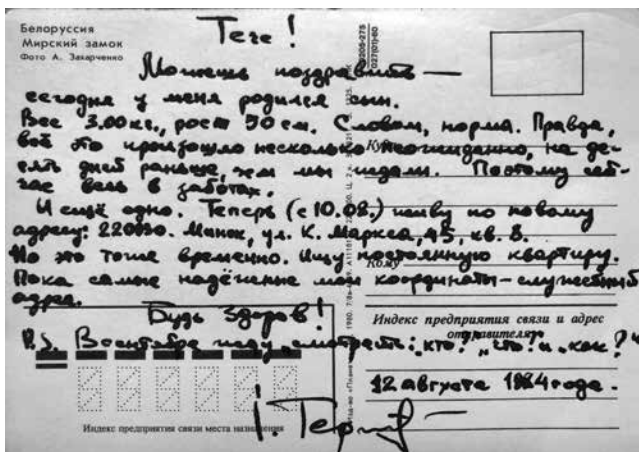 Белоруссия
Мирский замок
Фото А. Захарченко
Гече!
Можешь поздравить —
сегодня у меня родился сын.
Вес 3.00 кг., рост 50 см. Словом, норма. Правда,
всё это произошло несколько неожиданно, на де-
сять дней раньше, чем мы ждали. Поэтому сей-
час весь в заботах.
И ещё одно. Теперь (с 10.08.) живу по новому
адресу: Минск, ул. К. Маркса, 45, кв. 3.
Но это тоже временно. Ищу постоянную квартиру.
Пока самые надёжные мои координаты – служебный
адрес.
Будь здоров!
P.S. В сентябре „кто?" „что?" и „как?"
12 августа 1984 года.
Кому
Индекс предприятия связи и адрес
отправителя
Индекс предприятия связи места назначения